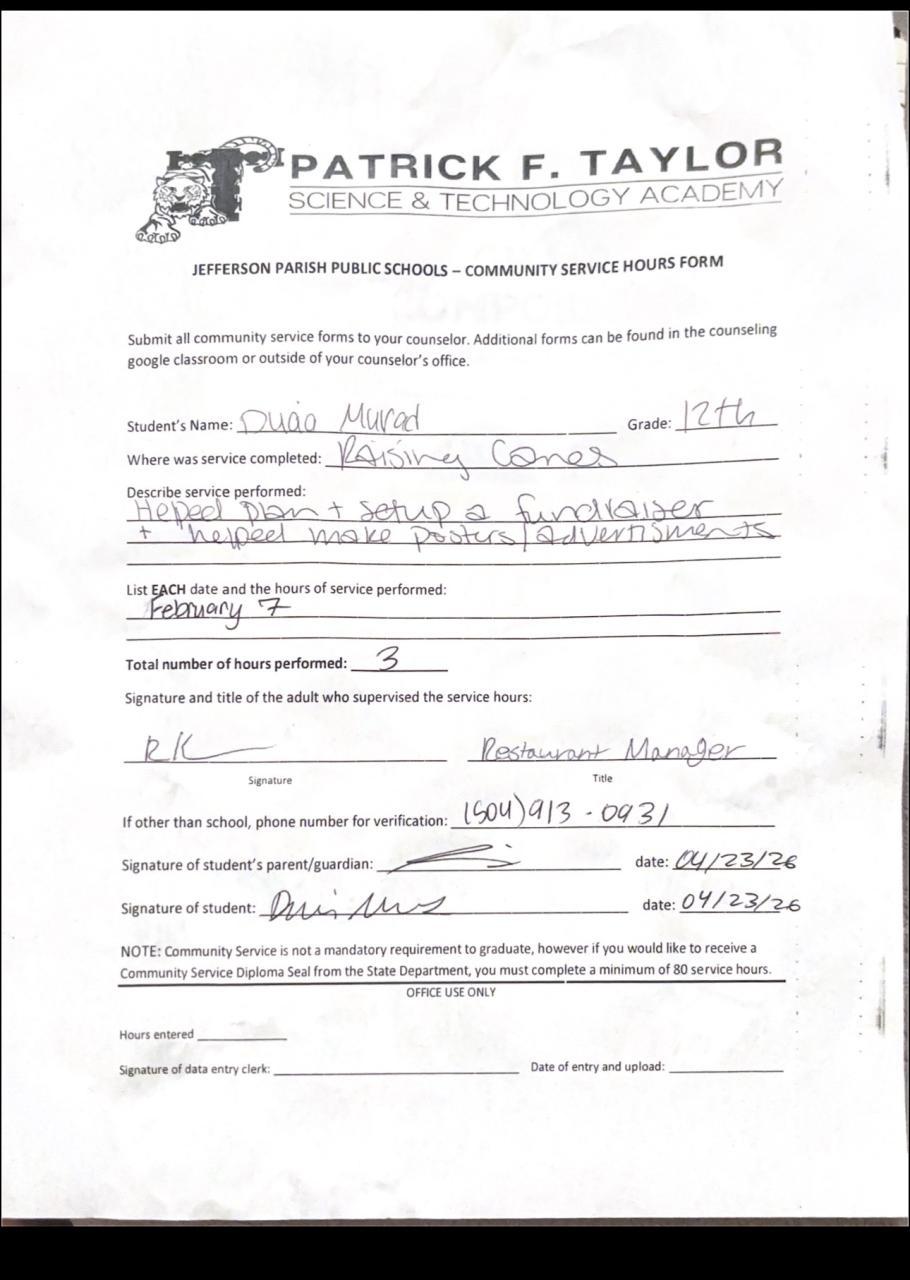 PATRICK F. TAYLOR
SCIENCE & TECHNOLOGY ACADEMY
JEFFERSON PARISH PUBLIC SCHOOLS – COMMUNITY SERVICE HOURS FORM
Submit all community service forms to your counselor. Additional forms can be found in the counseling
google classroom or outside of your counselor's office.
Student's Name: Duaa Murad Grade: 12th
Where was service completed: Raising Canes
Describe service performed:
Helped plan + setup a fundraiser
+ helped make posters/advertisments
List EACH date and the hours of service performed:
February 7
Total number of hours performed: 3
Signature and title of the adult who supervised the service hours:
RK Restaurant Manager
Signature Title
If other than school, phone number for verification: (504)913-0931
Signature of student's parent/guardian: date: 04/23/26
Signature of student: date: 04/23/26
NOTE: Community Service is not a mandatory requirement to graduate, however if you would like to receive a
Community Service Diploma Seal from the State Department, you must complete a minimum of 80 service hours.
OFFICE USE ONLY
Hours entered
Signature of data entry clerk: Date of entry and upload: